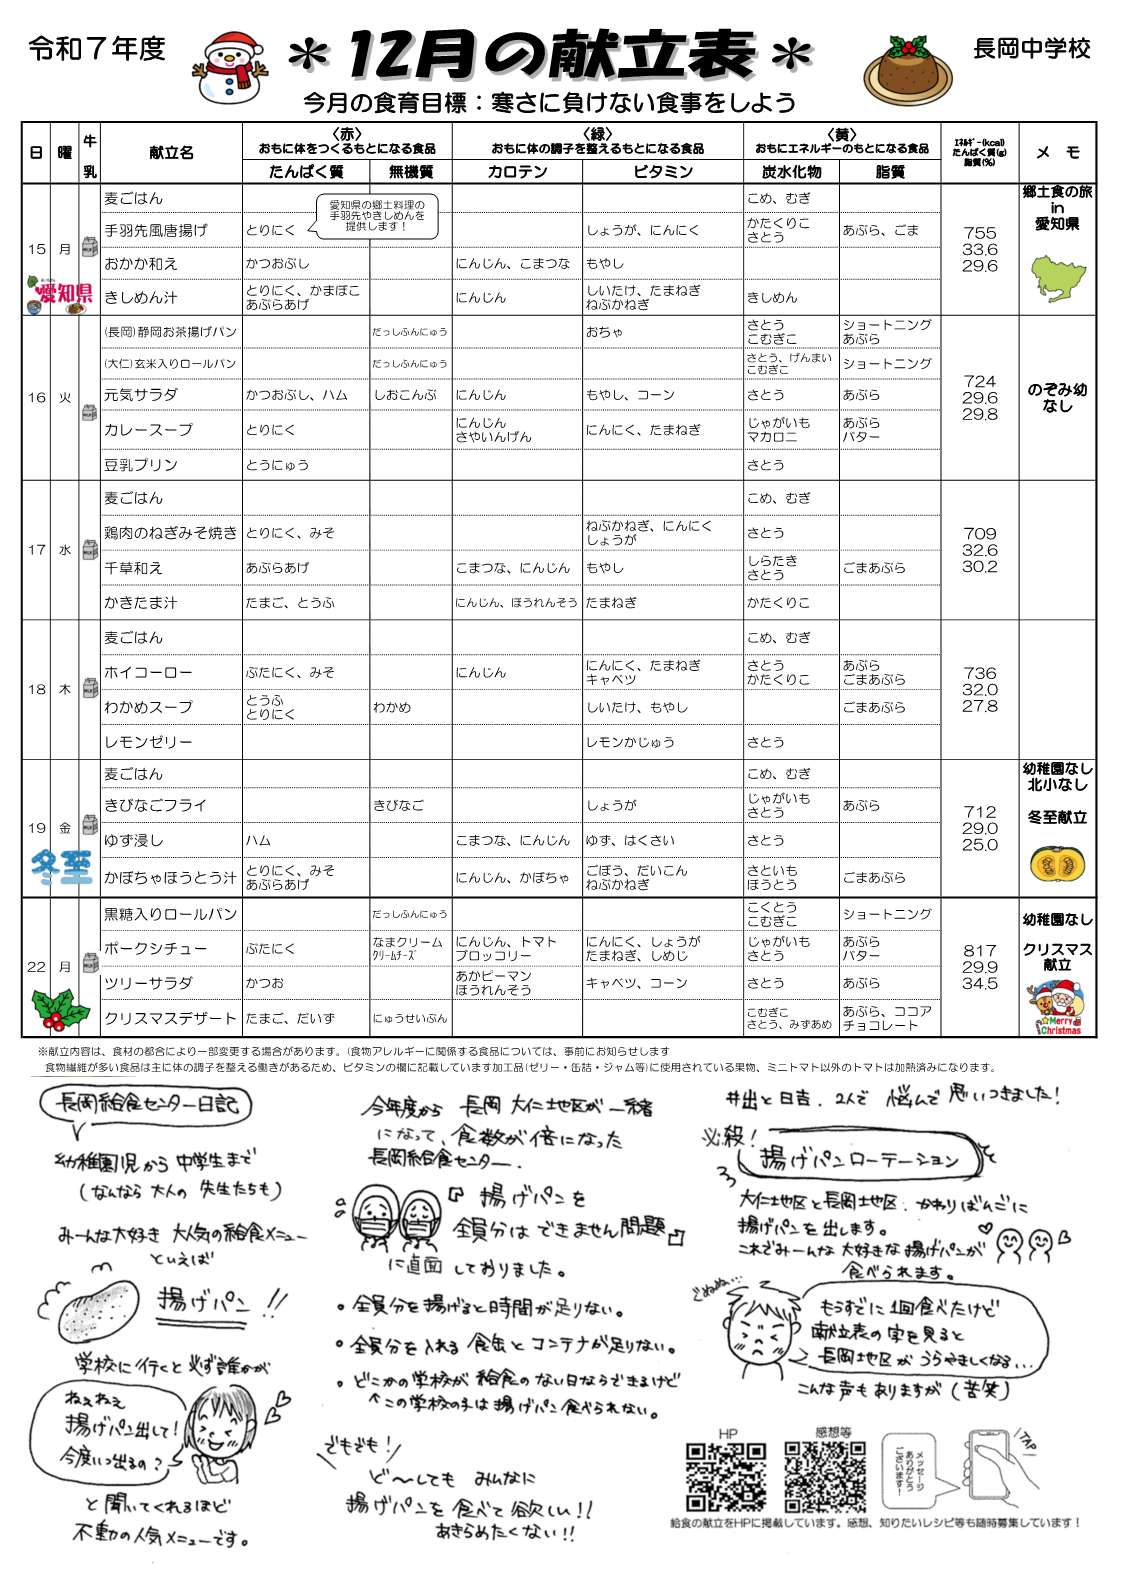 令和７年度
＊ 12月の献立表 ＊
長岡中学校
今月の食育目標：寒さに負けない食事をしよう
日 曜 牛乳 献立名 〈赤〉 〈緑〉 〈黄〉 ｴﾈﾙｷﾞｰ(kcal) メ モ
おもに体をつくるもとになる食品 おもに体の調子を整えるもとになる食品 おもにエネルギーのもとになる食品 たんぱく質(g)
脂質(%)
たんぱく質 無機質 カロテン ビタミン 炭水化物 脂質
15 月
愛知県
麦ごはん こめ、むぎ
愛知県の郷土料理の
手羽先やきしめんを
提供します！
手羽先風唐揚げ とりにく しょうが、にんにく かたくりこ さとう あぶら、ごま
おかか和え かつおぶし にんじん、こまつな もやし
きしめん汁 とりにく、かまぼこ あぶらあげ にんじん しいたけ、たまねぎ ねぶかねぎ きしめん
755
33.6
29.6
郷土食の旅
in
愛知県
16 火
(長岡)静岡お茶揚げパン だっしふんにゅう おちゃ さとう こむぎこ ショートニング あぶら
(大仁)玄米入りロールパン だっしふんにゅう さとう、げんまい こむぎこ ショートニング
元気サラダ かつおぶし、ハム しおこんぶ にんじん もやし、コーン さとう あぶら
カレースープ とりにく にんじん さやいんげん にんにく、たまねぎ じゃがいも マカロニ あぶら バター
豆乳プリン とうにゅう さとう
724
29.6
29.8
のぞみ幼
なし
17 水
麦ごはん こめ、むぎ
鶏肉のねぎみそ焼き とりにく、みそ ねぶかねぎ、にんにく しょうが さとう
千草和え あぶらあげ こまつな、にんじん もやし しらたき さとう ごまあぶら
かきたま汁 たまご、とうふ にんじん、ほうれんそう たまねぎ かたくりこ
709
32.6
30.2
18 木
麦ごはん こめ、むぎ
ホイコーロー ぶたにく、みそ にんじん にんにく、たまねぎ キャベツ さとう かたくりこ あぶら ごまあぶら
わかめスープ とうふ とりにく わかめ しいたけ、もやし ごまあぶら
レモンゼリー レモンかじゅう さとう
736
32.0
27.8
19 金
冬至
麦ごはん こめ、むぎ
きびなごフライ きびなご しょうが じゃがいも さとう あぶら
ゆず浸し ハム こまつな、にんじん ゆず、はくさい さとう
かぼちゃほうとう汁 とりにく、みそ あぶらあげ にんじん、かぼちゃ ごぼう、だいこん ねぶかねぎ さといも ほうとう ごまあぶら
712
29.0
25.0
幼稚園なし
北小なし
冬至献立
22 月
黒糖入りロールパン だっしふんにゅう こくとう こむぎこ ショートニング
ポークシチュー ぶたにく なまクリーム ｸﾘｰﾑﾁｰｽﾞ にんじん、トマト ブロッコリー にんにく、しょうが たまねぎ、しめじ じゃがいも さとう あぶら バター
ツリーサラダ かつお あかピーマン ほうれんそう キャベツ、コーン さとう あぶら
クリスマスデザート たまご、だいず にゅうせいぶん こむぎこ さとう、みずあめ あぶら、ココア チョコレート
817
29.9
34.5
幼稚園なし
クリスマス
献立
Merry
Christmas
※献立内容は、食材の都合により一部変更する場合があります。（食物アレルギーに関係する食品については、事前にお知らせします
食物繊維が多い食品は主に体の調子を整える働きがあるため、ビタミンの欄に記載しています加工品(ゼリー・缶詰・ジャム等)に使用されている果物、ミニトマト以外のトマトは加熱済みになります。
長岡給食センター日記
幼稚園児から中学生まで
（なんなら 大人の 先生たちも）
みーんな大好き 大人気の給食メニュー
といえば
揚げパン!!
学校に行くと必ず誰かが
ねぇねぇ
揚げパン出して！
今度いつ出るの？
と聞いてくれるほど
不動の人気メニューです。
今年度から 長岡 大仁地区が一緒
になって、食数が倍になった
長岡給食センター．
『揚げパンを
全員分はできません問題』
に直面しておりました。
・全員分を揚げると時間が足りない。
・全員分を入れる食缶とコンテナが足りない。
・どこかの学校が給食のない日ならできるけど
この学校の子は揚げパン食べられない。
でもでも！
ど～しても みんなに
揚げパンを食べて欲しい!!
あきらめたくない!!
井出と日吉．2人で 悩んで思いつきました！
必殺！
揚げパンローテーション
大仁地区と長岡地区．かわりばんこに
揚げパンを出します。
これでみーんな大好きな揚げパンが
食べられます。
ぐぬぬ…
もうすでに1回食べたけど
献立表の字を見ると
長岡地区がうらやましくなる…
こんな声もありますが（苦笑）
HP
感想等
メッセージ
ありがとう
ございます！
TAP
給食の献立をHPに掲載しています。感想、知りたいレシピ等も随時募集しています！